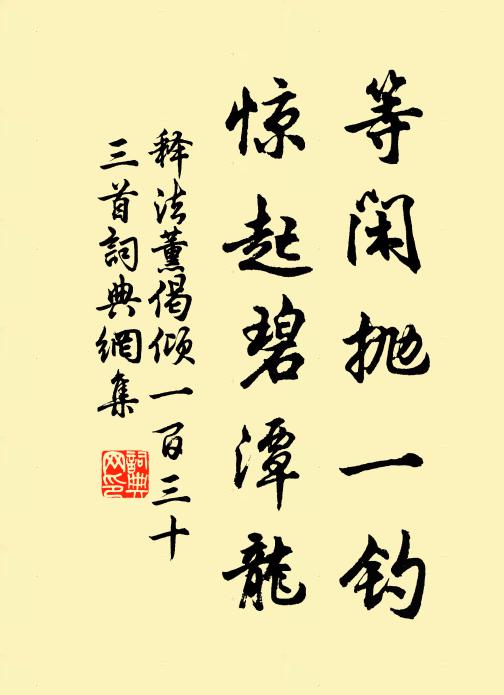 等闲抛一钓
惊起碧潭龙
释法薰偈倾一百三十
三首词典网集
词典网印